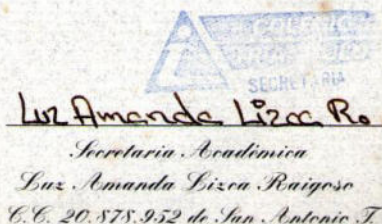 COLEGIO
SECRETARIA
Luz Amanda Lizca R.
Secretaria Académica
Luz Amanda Lizca Raigoso
C.C. 20.878.952 de San Antonio T.